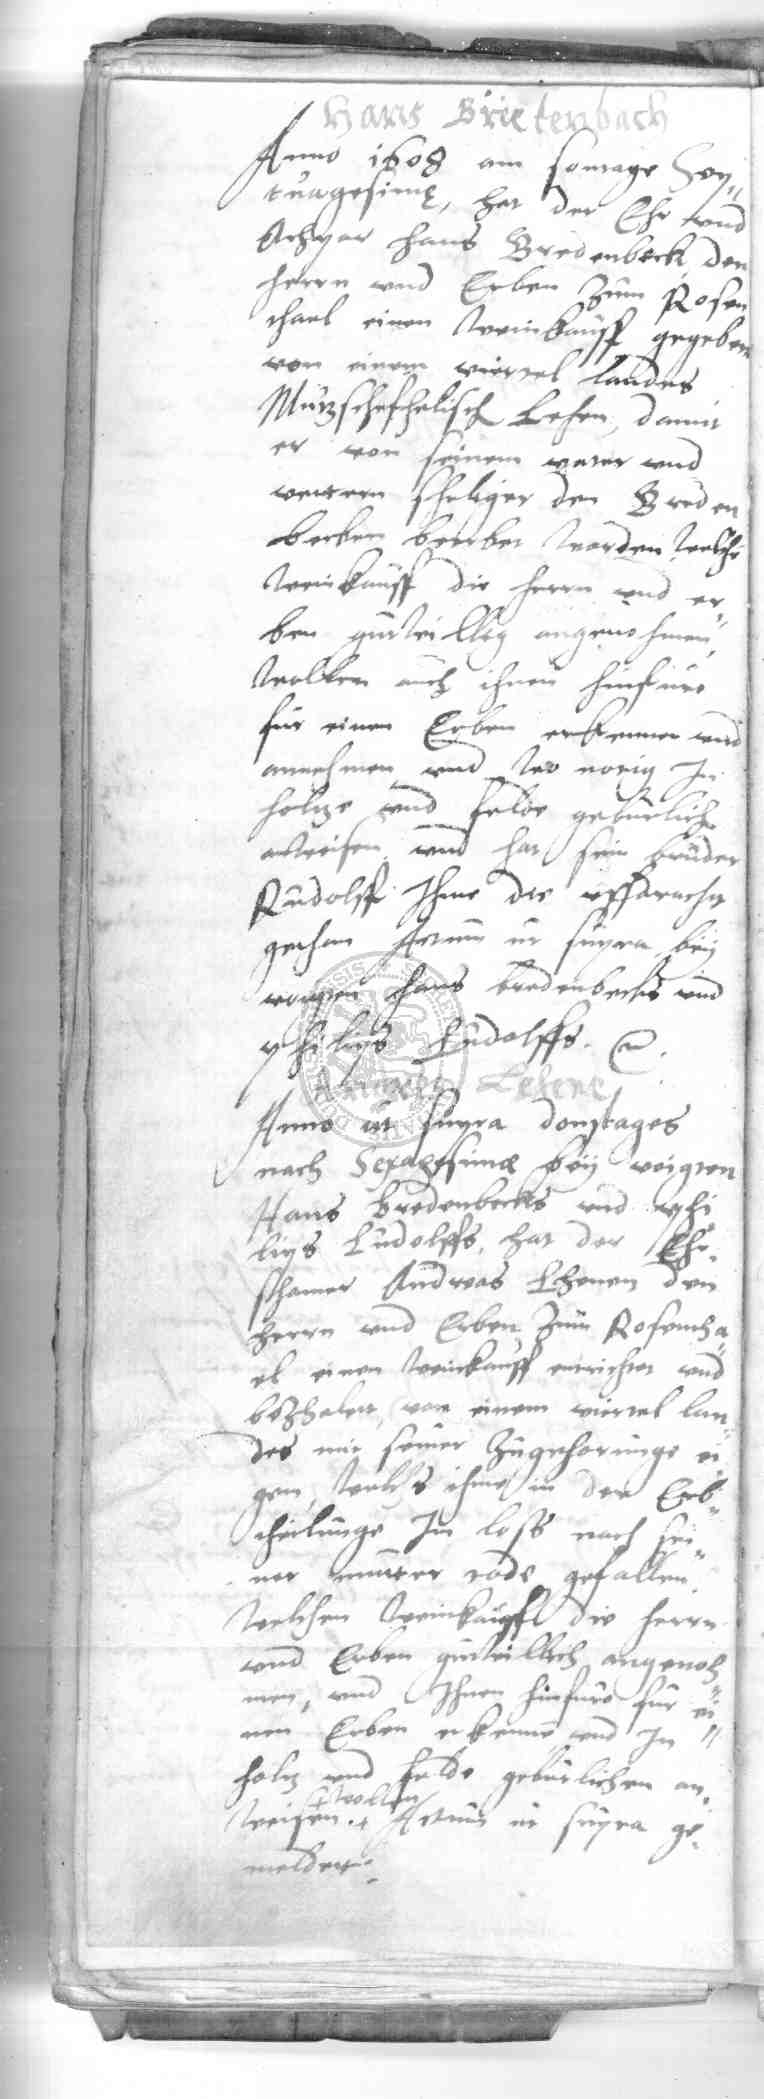 Hans Brietenbach
Anno 1608 am sontage Sep„
tuagesimę, hat der Ehr und
Achpar Hans Bredenbeck den
herrn und Erben Zum Rosen
thael einen Weinkauff gegeben
von einem viertel landes
Mutzschefhelisch Lehen, damit
er von seinem vater und
vettern sheliger den Breden
becken beerbet worden, welche
Weinkauff die herrn und er„
ben gutwillig angenohmen,
Wollen auch ihnen hinfuro
fur einen Erben erkennen und
annehmen und wo norig In
holtze und felde geburlich
anweisen und hat sein bruder
Rudolff Ihme die
gethan Actum ut supra bey
Hans Bredenbecks und
philips Ludolffs.
Andres Lehene
Anno ut supra donstages
nach Sexagesimæ bey voigten
Hans Bredenbecks und phi
lips Ludolffs, hat der Ehr„
shamer Andreas Lhenen den
herrn und Erben Zum Rosentha„
el einen Weinkauff entrichtet und
bezhalett, von einem viertel lan„
des mit seiner Zugehorunge ei„
gen, Welchs ihme in der Erb„
theilunge Im loss nach sei„
ner mutter tode gefallen.
Welchen Weinkauff die herrn
und Erben gutwillich angenoh„
men, und Ihnen hinfuro fur ei„
nen Erben erkenne und In„
holtz und felde geburlichen an„
+ wollen
weisen. + Actum ut supra ge„
meldett.